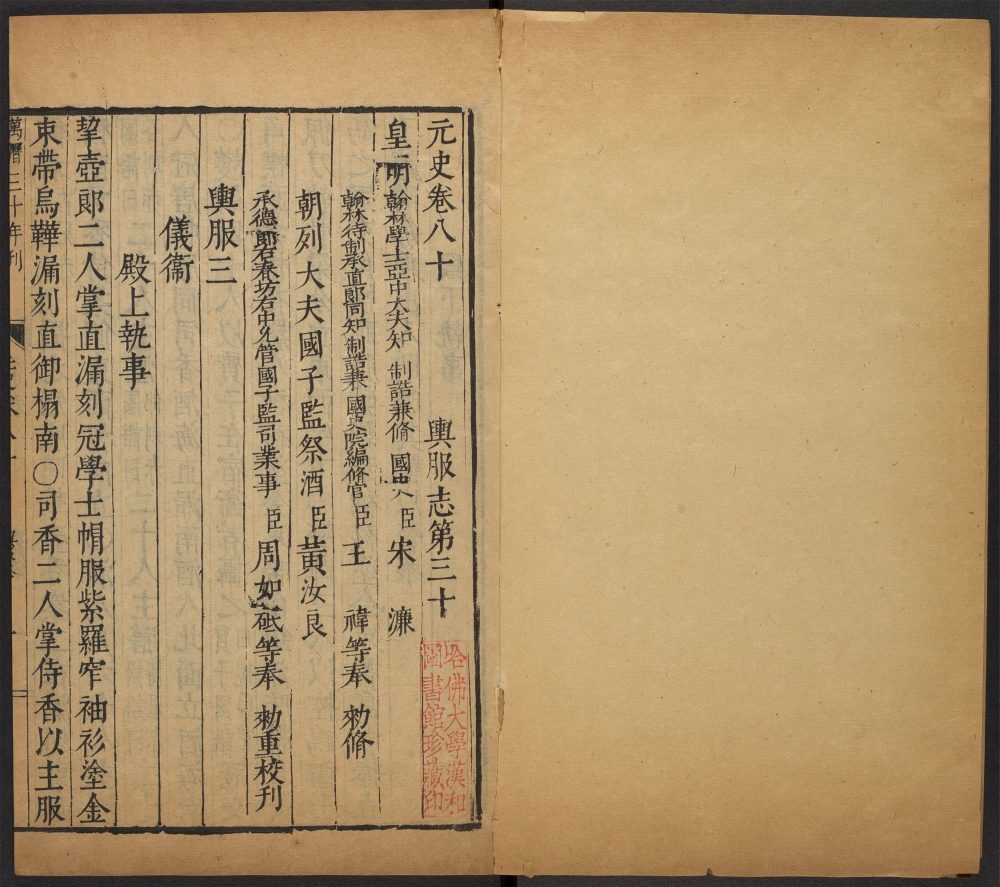 元史卷八十 輿服志第三十
皇明翰林學士亞中大夫知 制誥兼脩 國史 臣 宋 濂
翰林待制承直郎同知 制誥兼 國史院編脩官 臣 王 禕等奉 勑脩
朝列大夫國子監祭酒 臣 黃汝良
承德郎右春坊右中允管國子監司業事 臣 周如砥等奉 勑重校刊
輿服三
儀衞
殿上執事
挈壺郎二人掌直漏刻冠學士㡌服紫羅窄袖衫塗金
束帶烏鞾漏刻直御榻南○司香二人掌侍香以主服
萬曆三十年刊
哈佛大學漢和
圖書館珍藏印